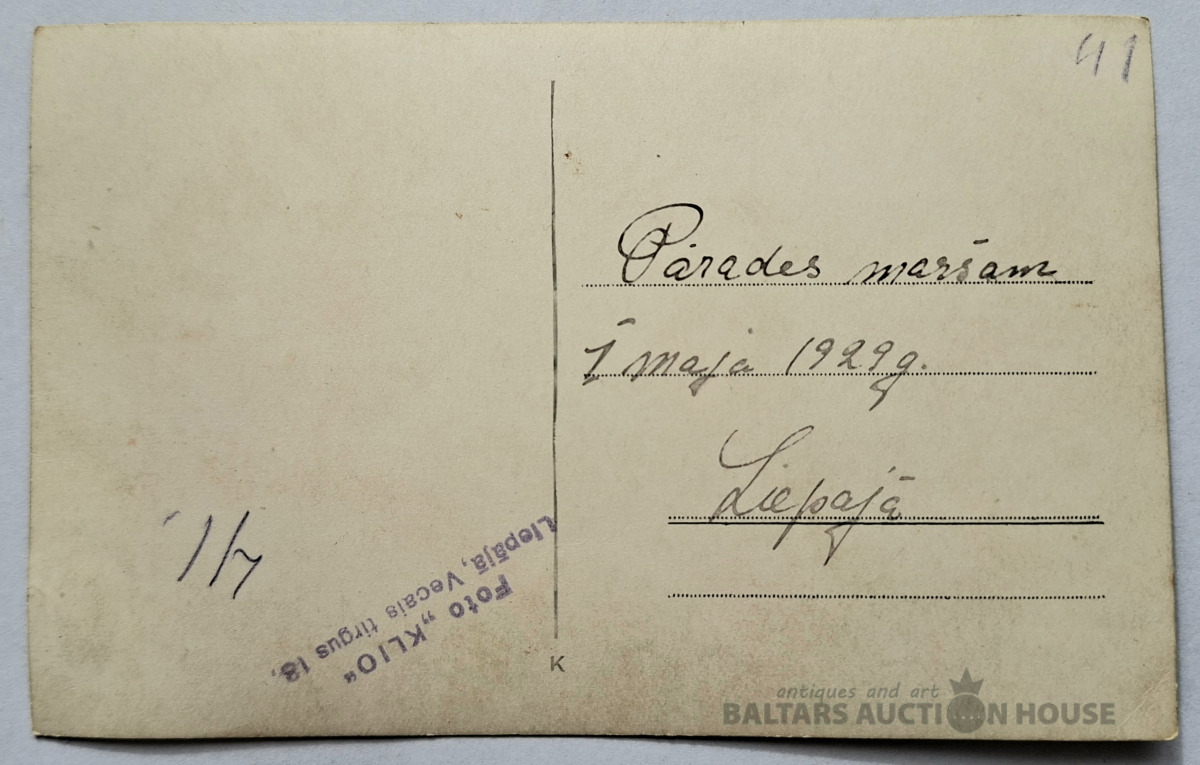 41
Parades maršam
1 maja 1929g.
Liepajā
1/7
Foto „KLIO“
Liepājā, Vecais tirgus 18.
K
antiques and art
BALTARS AUCTION HOUSE